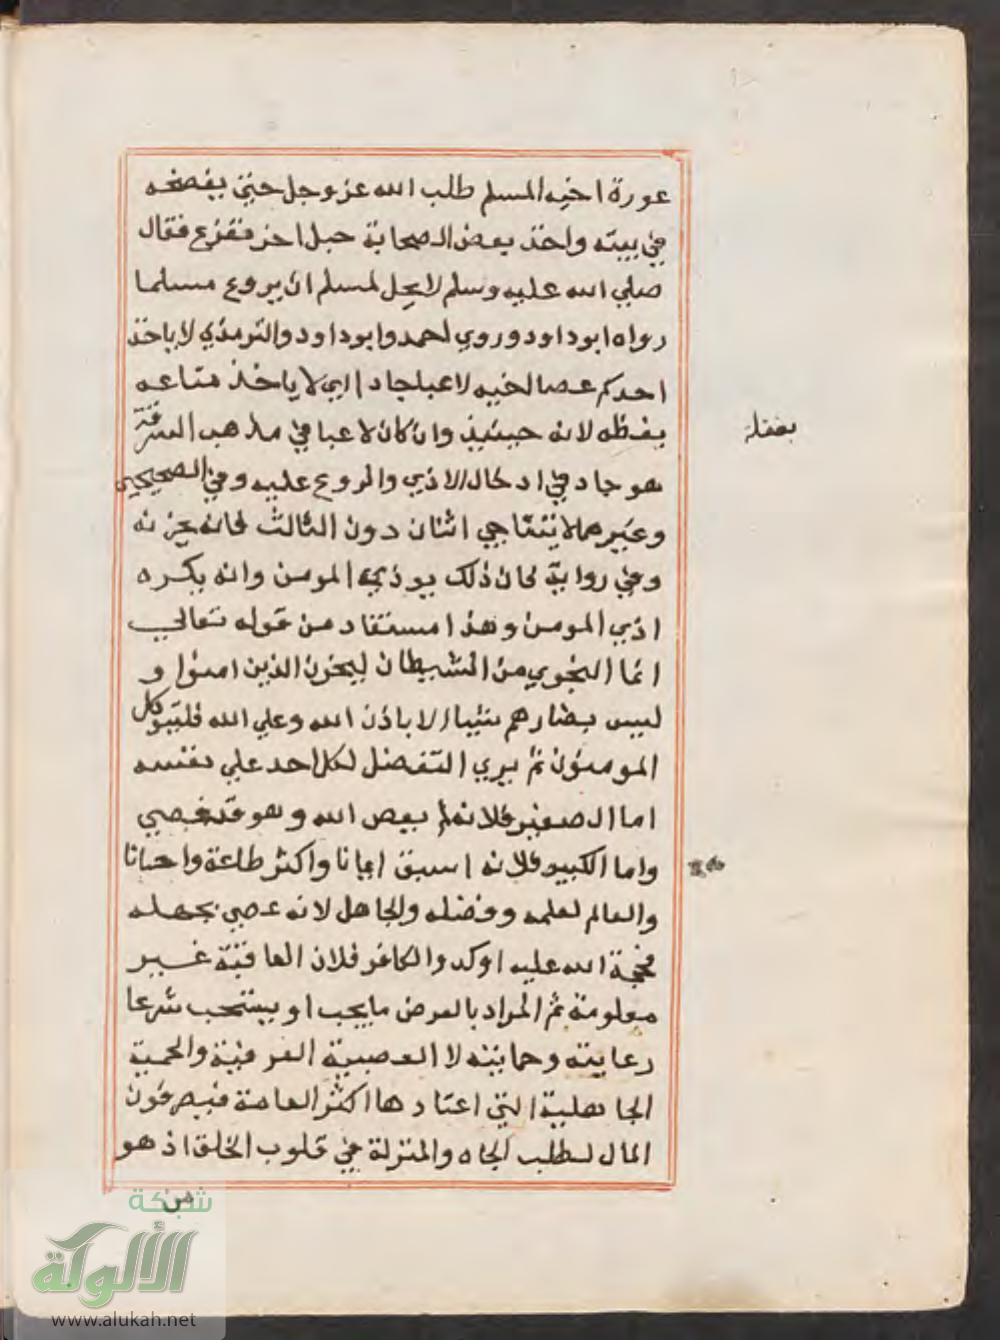 عورة اخيه المسلم طلب الله عز وجل حتى يفضحه
في بيته واخذ بعض الصحابة حبل اخر ففزع فقال
صلي الله عليه وسلم لا يحل لمسلم ان يروع مسلما
رواه ابو داود وروي احمد وابو داود والترمذي لا ياخذ
احدكم عصا اخيه لاعبا جادا اي لا ياخذ متاعه
بغظه لانه حينيذ وان كان لاعبا في مذهب السرقة
هو جاد في ادخال الاذي والروع عليه وفي الصحيحين
وغيرهما لا يتناجي اثنان دون الثالث فانه يحزنه
وفي رواية فان ذلك يوذي المومن والله يكره
اذي المومن وهذا مستفاد من قوله تعالي
انما النجوي من الشيطان ليحزن الذين امنوا و
ليس بضارهم شيا الا باذن الله وعلي الله فليتوكل
المومنون ثم يري التفضل لكل احد علي نفسه
اما الصغير فلانه لم يعص الله وهو قد عصي
واما الكبير فلانه اسبق ايمانا واكثر طاعة واحسانا
والعالم لعلمه وفضله والجاهل لانه عصي بجهله
فحجة الله عليه اوكد والكافر فلان العاقبة غير
معلومة ثم المراد بالعرض ما يجب او يستحب شرعا
رعايته وحمايته لا العصبية العرفية والحمية
الجاهلية التي اعتادها اكثر العامة فيصرفون
المال لطلب الجاه والمنزلة في قلوب الخلق اذ هو
من
شبكة
الألوكة
www.alukah.net